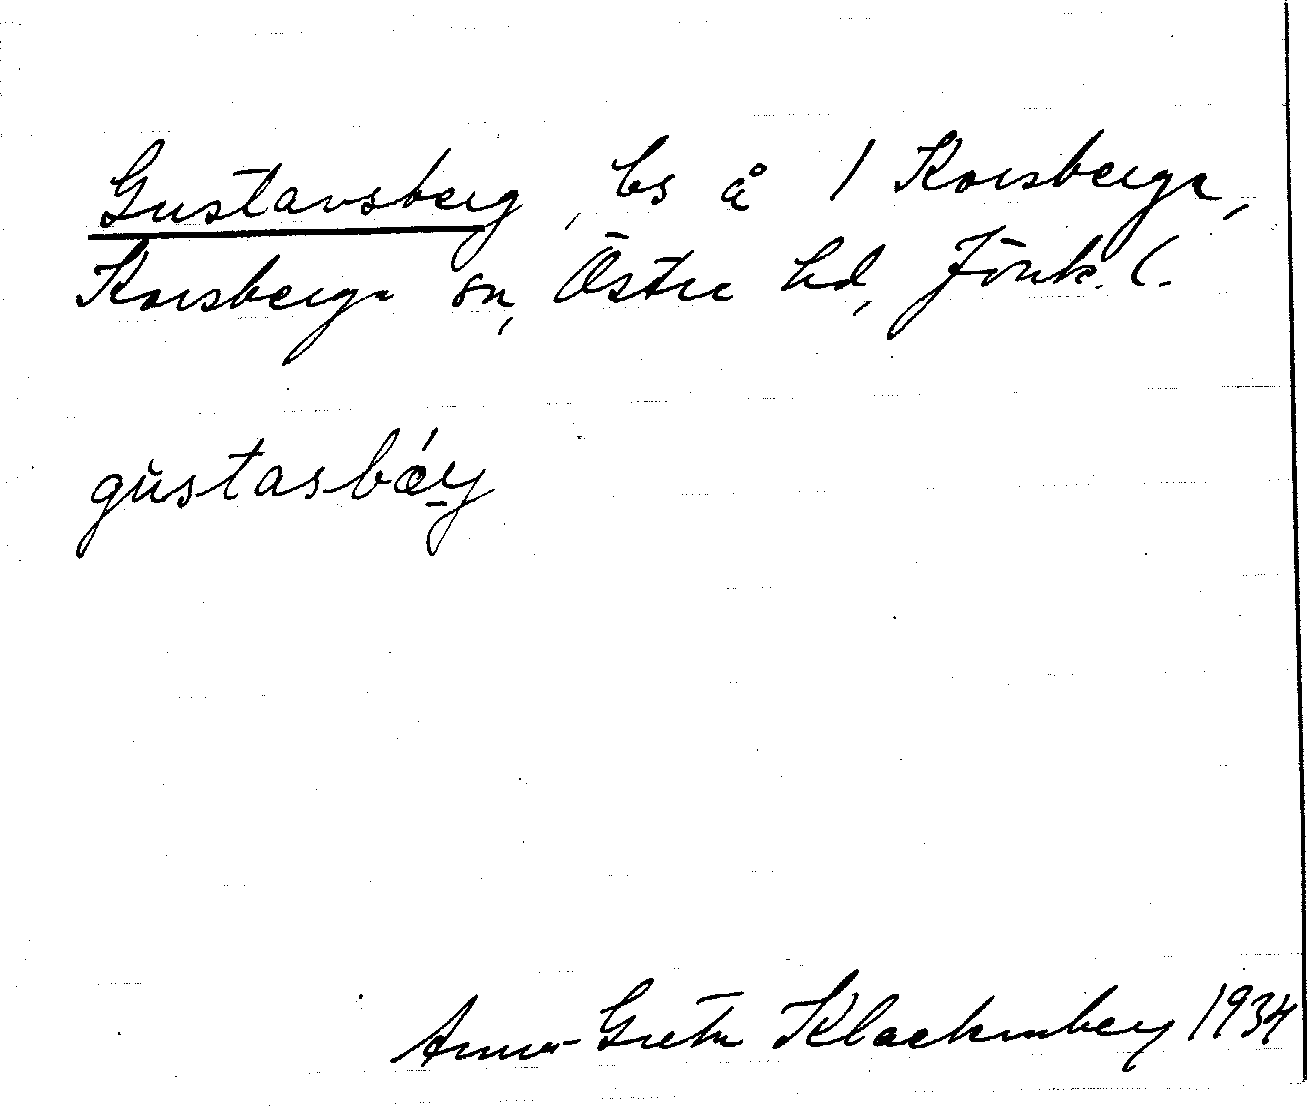 Gustavsberg, ls å 1 Korsberga,
Korsberga sn, Östra hd, Jönk. l.
gùstasbǽ̱y
Anna-Greta Klackenberg 1934